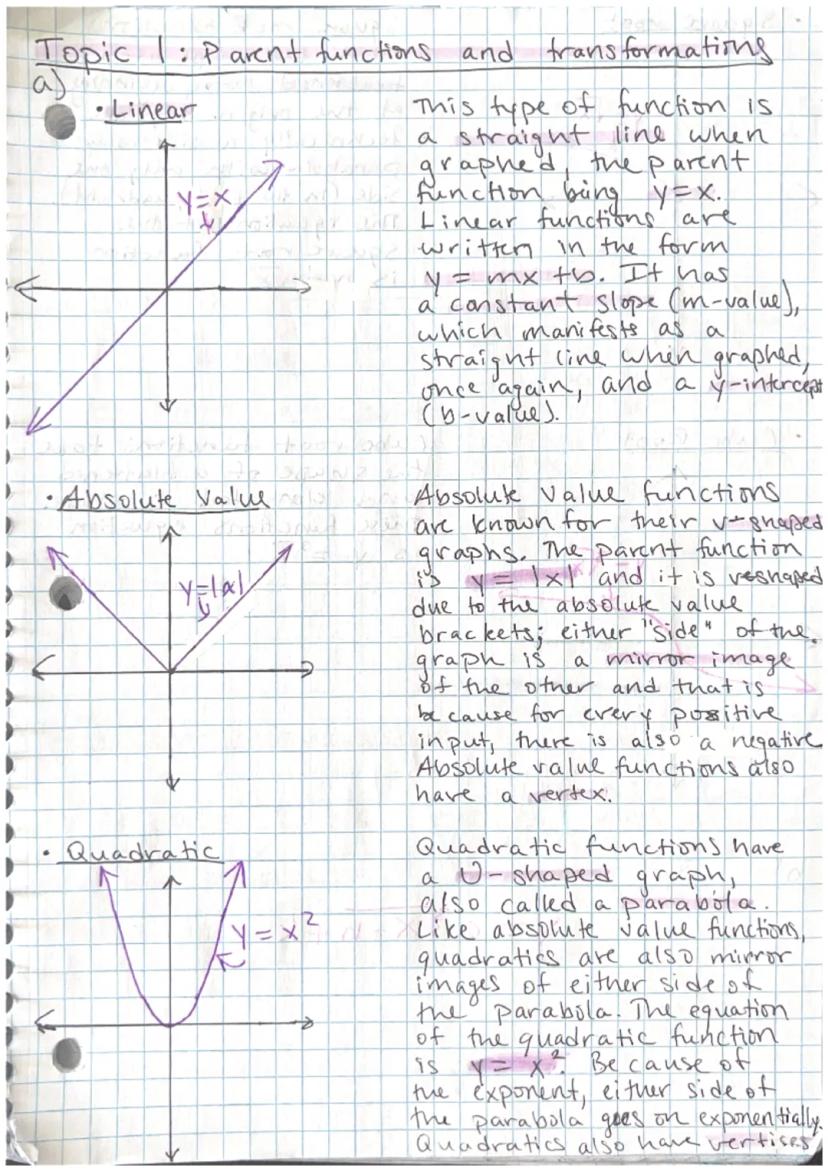 Topic 1: Parent functions and transformations
a)
• Linear
y=x
This type of function is
a straight line when
graphed, the parent
function being y=x.
Linear functions are
written in the form
y = mx +b. It has
a constant slope (m-value),
which manifests as a
straight line when graphed,
once again, and a y-intercept
(b-value).
• Absolute Value
y=|x|
Absolute Value functions
are known for their v-shaped
graphs. The parent function
is y = |x| and it is v-shaped
due to the absolute value
brackets; either "side" of the
graph is a mirror image
of the other and that is
because for every positive
input, there is also a negative
Absolute value functions also
have a vertex.
• Quadratic
y = x²
Quadratic functions have
a U-shaped graph,
also called a parabola.
Like absolute value functions,
quadratics are also mirror
images of either side of
the parabola. The equation
of the quadratic function
is y = x². Because of
the exponent, either side of
the parabola goes on exponentially.
Quadratics also have vertises